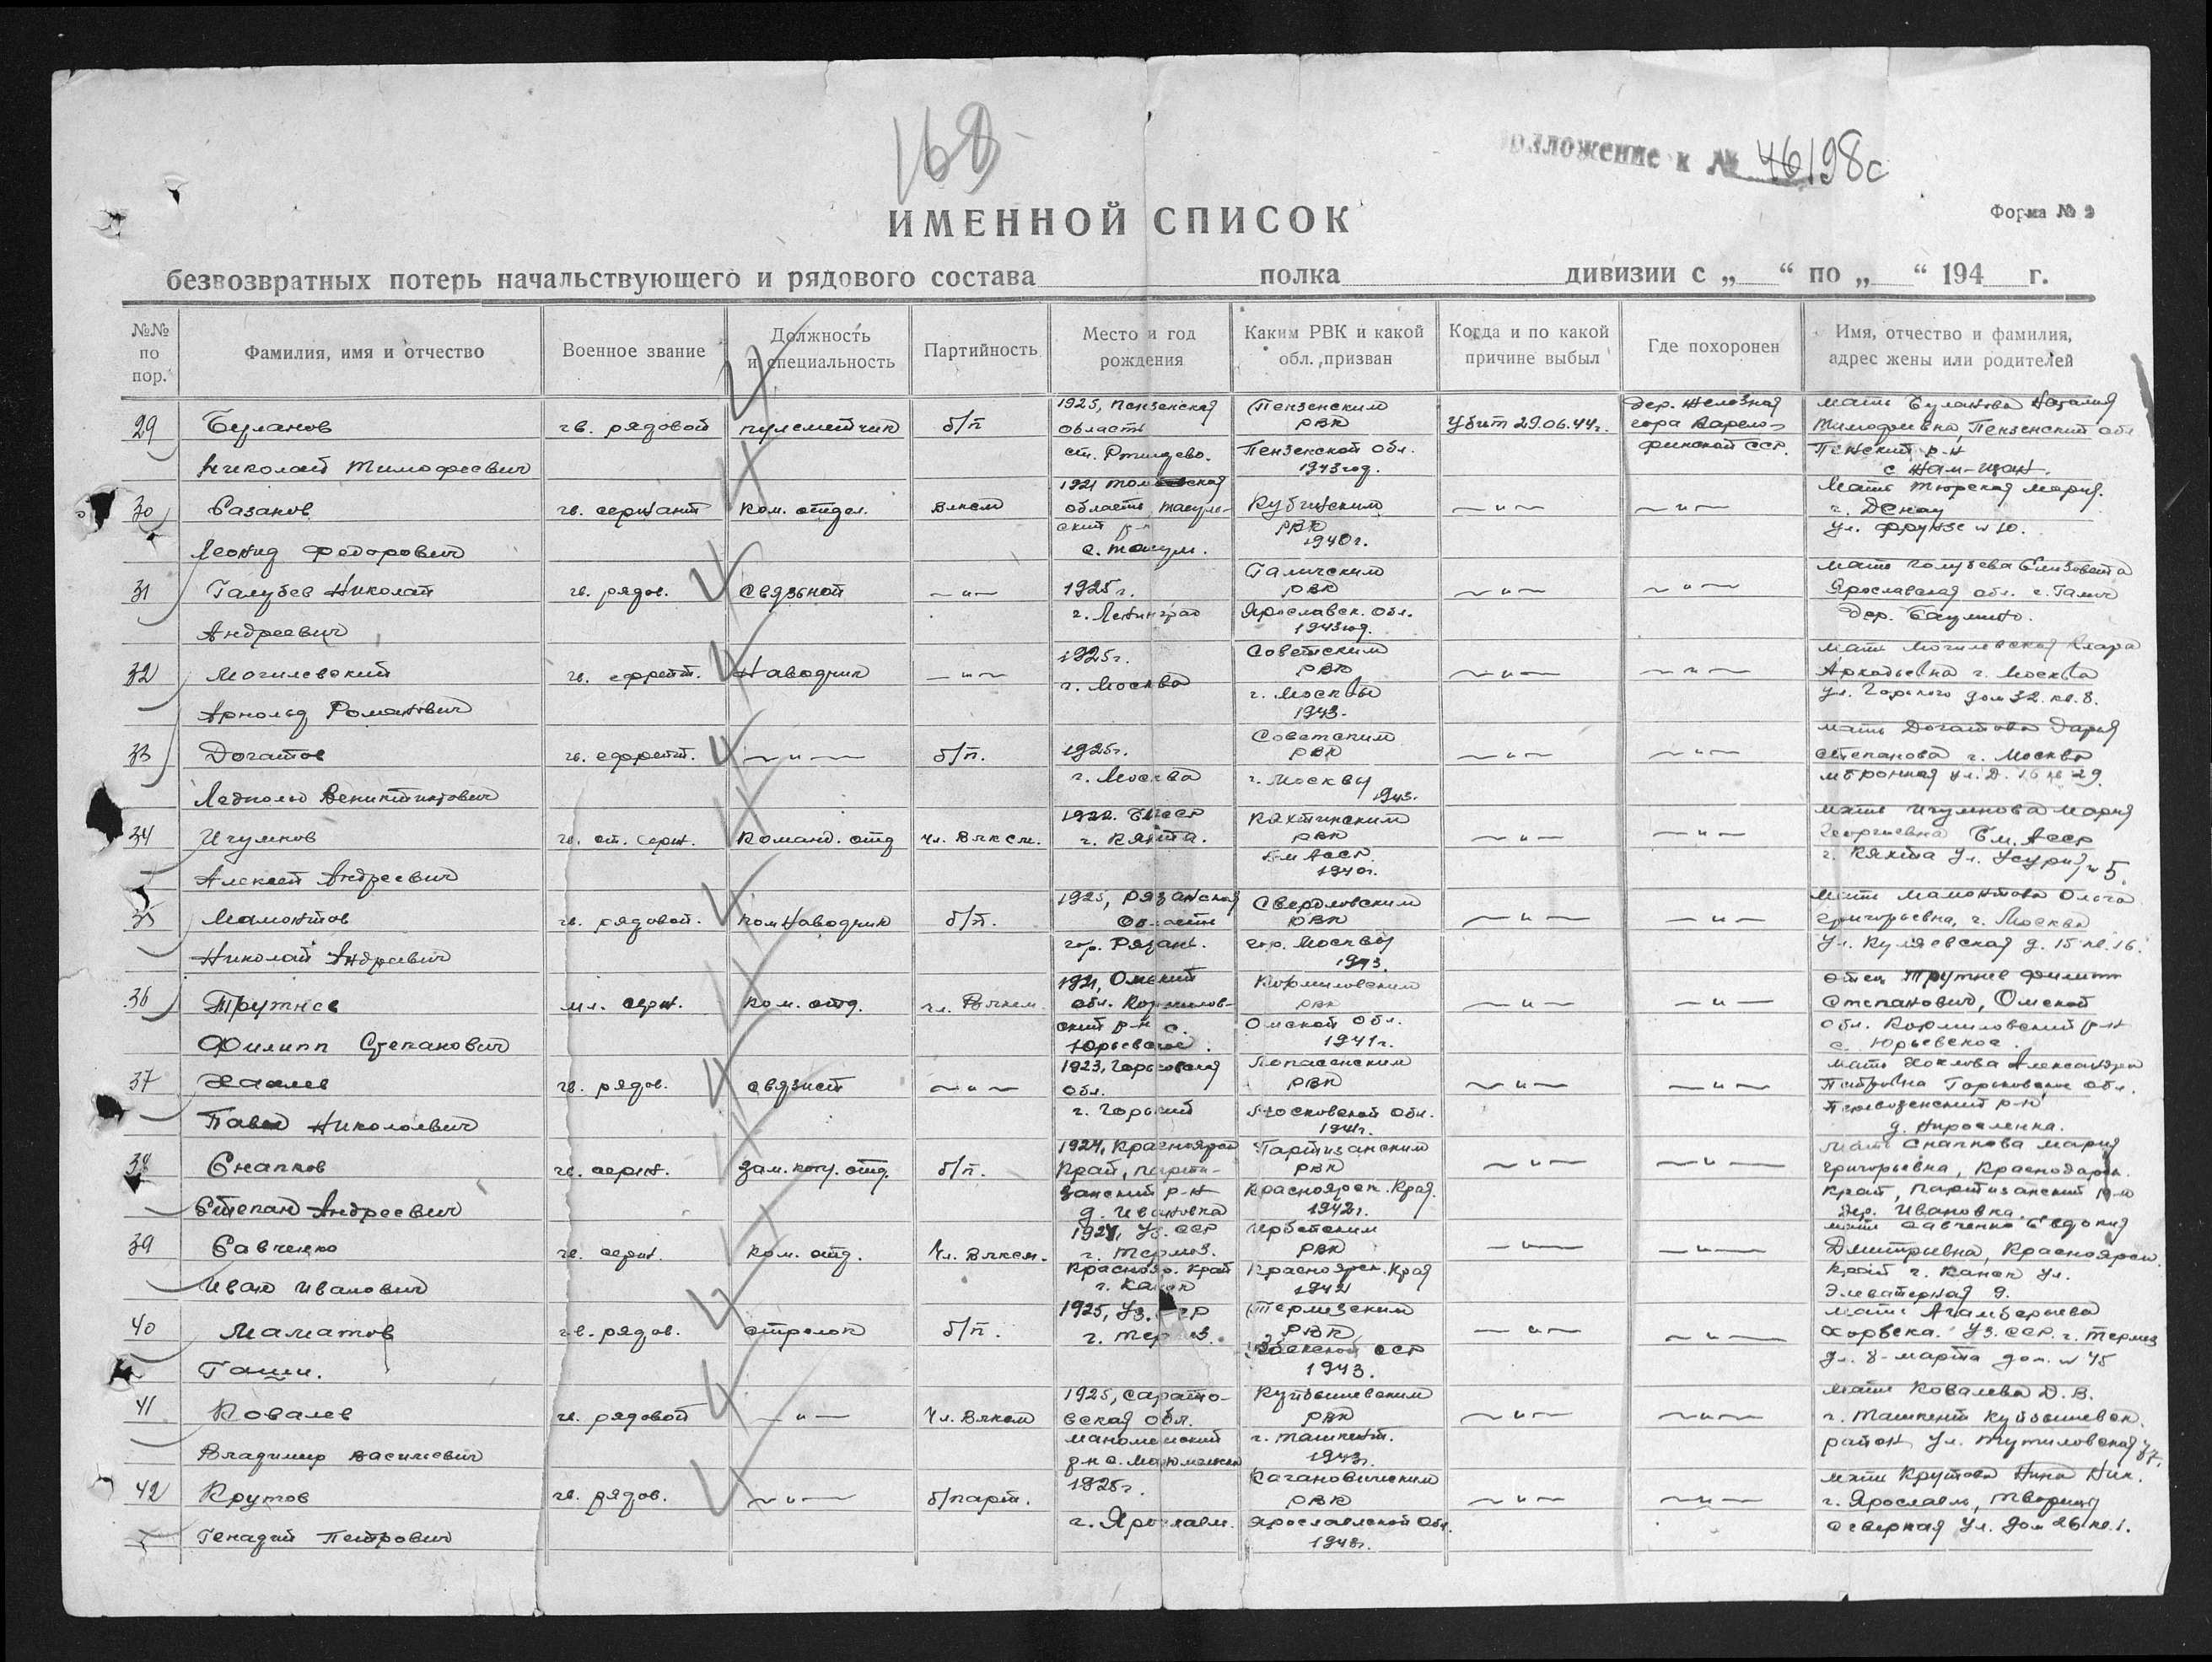 168
Приложение к № 46198с
ИМЕННОЙ СПИСОК
Форма № 2
безвозвратных потерь начальствующего и рядового состава полка дивизии с „ “ по „ “ 194 г.
№№ по пор. Фамилия, имя и отчество Военное звание Должность и специальность Партийность Место и год рождения Каким РВК и какой обл. призван Когда и по какой причине выбыл Где похоронен Имя, отчество и фамилия, адрес жены или родителей
29 Буланов гв. рядовой пулеметчик б/п 1925, Пензенская область Пензенским РВК Убит 29.06.44г. дер. Железная гора Карело- мать Буланова Наталия Тимофеевна, Пензенский обл
Николай Тимофеевич ст. Ртищево. Пензенской обл. 1943 год. финской ССР. р-н
30 Базанов гв. сержант Ком. отдел. влксм 1921 область РВК 1940г. — " — — " — Мать Мария. г. Денау
Леонид Федорович ул. Фрунзе № 10.
31 Галубев Николай гв. рядов. Связной — " — 1925г. Галичским РВК — " — — " — мать Голубева Елизовета Ярославская обл. г. Галич
Андреевич г. Ленинград Ярославск. обл. 1943 год. дер.
32 Могилевский гв. ефрейт. Наводчик — " — 1925г. Советским РВК — " — — " — мать Могилевская Клара Аркадьевна г. Москва
Арнольд Романович г. Москва г. Москвы 1943. ул. Горького дом 32. кв. 8.
33 Догатов гв. ефрейт. — " — б/п. 1925г. Советским РВК — " — — " — мать Догатова Дария Степанова г. Москва
г. Москва г. Москвы 1943. ул. Д. 16 кв 29.
34 Игумнов гв. ст. серж. Команд. отд чл. Влксм. 1922. г. Кяхта. Кяхтинским РВК — " — — " — мать Игумнова Мария Георгиевна Б.м. Асср
Алексей Андреевич Б.м Асср. 1940г. г. Кяхта ул. № 5.
35 Мамонтов гв. рядовой. пом Наводчик б/п. 1925, Рязанская Область Свердловским РВК — " — — " — Мать Мамонтова Ольга Григорьевна, г. Москва
Николай Андреевич гор. Рязань. гор. Москвы 1943. ул. д. 15 кв. 16.
36 Трутнев мл. серж. Ком. отд. чл. Влксм 1921, Омский обл. Кормилов- Кормиловским РВК — " — — " — отец Трутнев Филипп Степанович, Омской
Филипп Степанович ский р-н с. Юрьевское. Омской обл. 1941г. обл. Кормиловский р-н с. Юрьевское.
37 Хохлев гв. рядов. связист — " — 1923, Горьковская обл. Лопасенским РВК — " — — " — мать Хохлова Александра Петровна Горьковская обл.
Павел Николаевич г. Горький Московской обл. 1941г. р-н
38 Снапков гв. серж. зам. ком. отд. б/п. 1924, Красноярск Край, парти- Партизанским РВК — " — — " — Мать Снапкова Мария Григорьевна, Краснодарск.
Степан Андреевич занский р-н д. Ивановка Красноярск. Край. 1942г. край, партизанский р-н дер. Ивановка.
39 Савченко гв. серж. Ком. отд. Чл. Влксм. 1924, Уз. ССР г. Термез. РВК — " — — " — мать Савченко Евдокия Дмитриевна, Красноярск.
Иван Иванович Краснояр. край г. Канск Красноярск. Край 1942 край г. Канск ул.
40 Маматов гв. рядов. стрелок б/п. 1925, Уз. ССР Термезским РВК — " — — " — мать
Таши. г. Термез. Узбекской ССР 1943. Уз. ССР. г. Термез ул. 8-марта дом. № 45
41 Ковалев гв. рядовой — " — Чл. Влксм 1925, Сарато- вская обл. Куйбышевским РВК — " — — " — мать Ковалева Д. В. г. Ташкент Куйбышевск.
Владимир Василиевич г. Ташкент. 1943г. район ул. 37.
42 Крутов гв. рядов. — " — б/парт. 1925г. Кагановическим РВК — " — — " — мать Крутова Нина Ник. г. Ярославль,
Генадий Петрович г. Ярославль. Ярославлской обл. 1943г. Северная ул. дом 26 кв. 1.